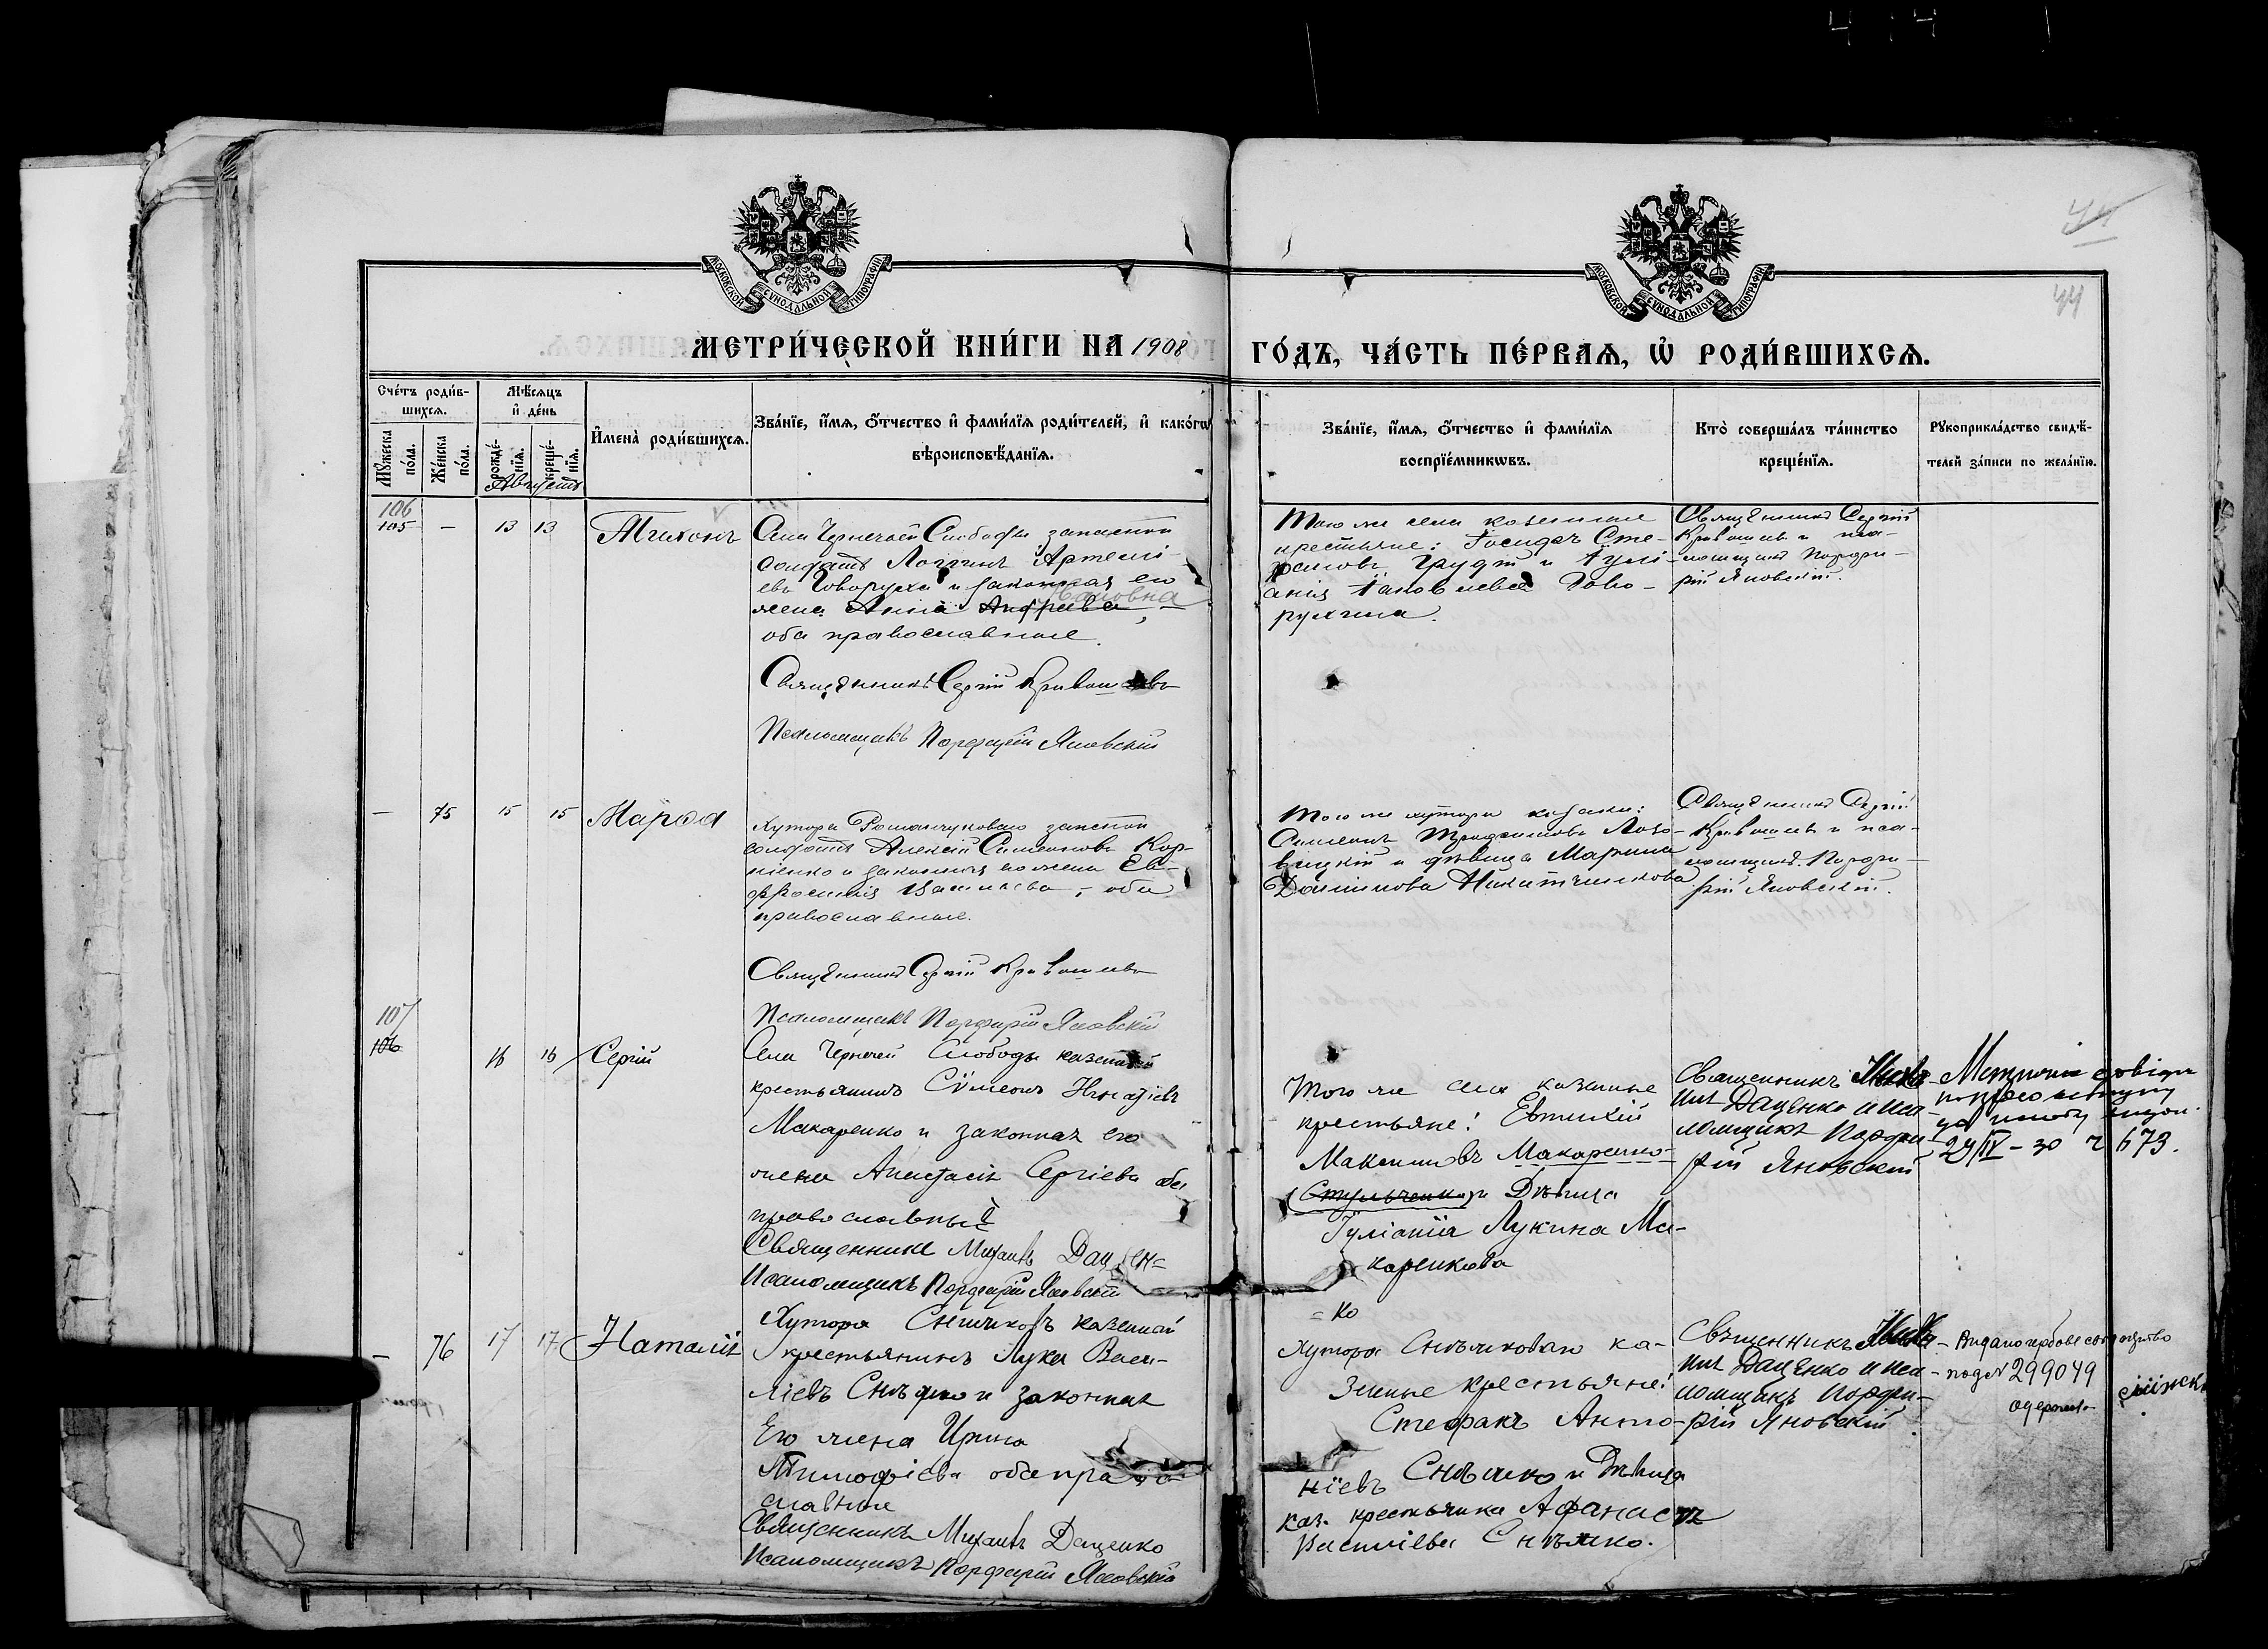 44
44
МОСКОВСКОЙ СѴНОДАЛЬНОЙ ТИПОГРАФІИ
МОСКОВСКОЙ СѴНОДАЛЬНОЙ ТИПОГРАФІИ
МЕТРИ́ЧЕСКОЙ КНИ́ГИ НА 1908
ГО́ДЪ, ЧА́СТЬ ПЕ́РВАѦ, Ѡ҆ РОДИ́ВШИХСѦ.
Сче́тъ роди́в-
шихсѧ.
Мѣ́сѧцъ
и҆ де́нь
Мꙋ́жеска
по́ла.
Же́нска
по́ла.
рожде́-
нїѧ.
креще́-
нїѧ.
Августъ
И҆мена̀ роди́вшихсѧ.
Зва́нїе, и҆́мѧ, ѻ҆́тчество и҆ фами́лїѧ роди́телей, и҆ како́гѡ
вѣроисповѣ́данїѧ.
Зва́нїе, и҆́мѧ, ѻ҆́тчество и҆ фами́лїѧ
воспрїе́мникѡвъ.
Кто̀ соверша́лъ та́инство
креще́нїѧ.
Рꙋкоприкла́дство свидѣ́-
телей за́писи по жела́нїю.
106
105 — 13 13
Тихонъ
Села Чернечей Слободы запасной
солдатъ Логгинъ Артемі-
евъ Говоруха и законная его
Ивановна
жена Анна Андреева,
оба православные.
Священникъ Сергій
Псаломщикъ Порфирій Яновскій
Того же села казенные
крестьяне: Сте-
фановъ и Іулі-
анія Яковлева Гово-
рухина.
Священникъ Сергій
и пса-
ломщикъ Порфи-
рій Яновскій.
— 75 15 15
Марѳа
Хутора запасной
солдатъ Алексій Симеоновъ Кор-
ніенко и законная его жена Ев-
фросинія Васильева, оба
православные.
Священникъ Сергій
Псаломщикъ Порфирій Яновскій
Того же хутора козаки:
Симеонъ Трофимовъ
и дѣвица Марина
Священникъ Сергій
и пса-
ломщикъ Порфи-
рій Яновскій.
107
106
16 16
Сергій
Села Чернечей Слободы казенный
крестьянинъ Сѵмеонъ Игнатіевъ
Макаренко и законная его
жена Анастасія Сергіева оба
православные
Священникъ Михаилъ Дацен=
Псаломщикъ Порфирій Яновскій
= ко
Того же села казенные
крестьяне: Евтихій
Максимовъ Макаренко
и Дѣвица
Іуліанія Лукина Ма-
каренкова
Священникъ Миха-
илъ Даценко и пса-
ломщикъ Порфи-
рій Яновскій
29/IV – 30 673.
— 76 17 17
Наталія
Хутора Снѣжковъ казенный
крестьянинъ Лука Васи-
ліевъ Снѣжко и законная
Его жена Ирина
Тимофіева оба право-
славные
Священникъ Михаилъ Даценко
Псаломщикъ Порфирій Яновскій
Хутора ка-
зенные крестьяне:
Стефанъ Анто-
ніевъ Снѣжко и Дѣвица
каз. крестьянка
Василіева Снѣжко.
Священникъ Миха-
илъ Даценко и пса-
ломщикъ Порфи-
рій Яновскій.
под № 299049